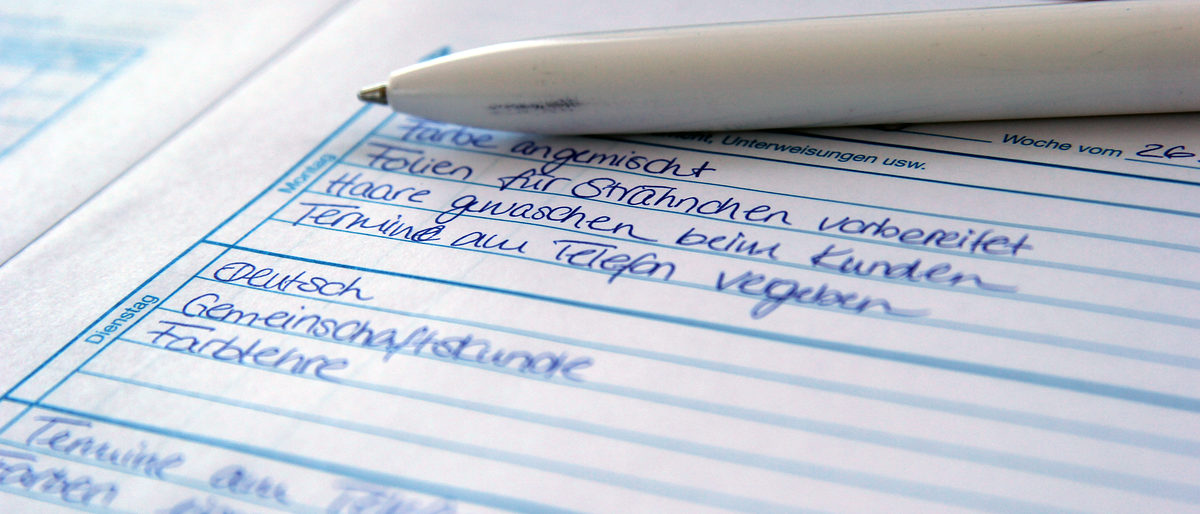 ment, Unterweisungen usw. Woche vom 26.
Montag
Farbe angemischt
Folien für Strähnchen vorbereitet
Haare gewaschen beim Kunden
Termine am Telefon vegeben
Dienstag
Deutsch
Gemeinschaftskunde
Farblehre
Termine am
Farben